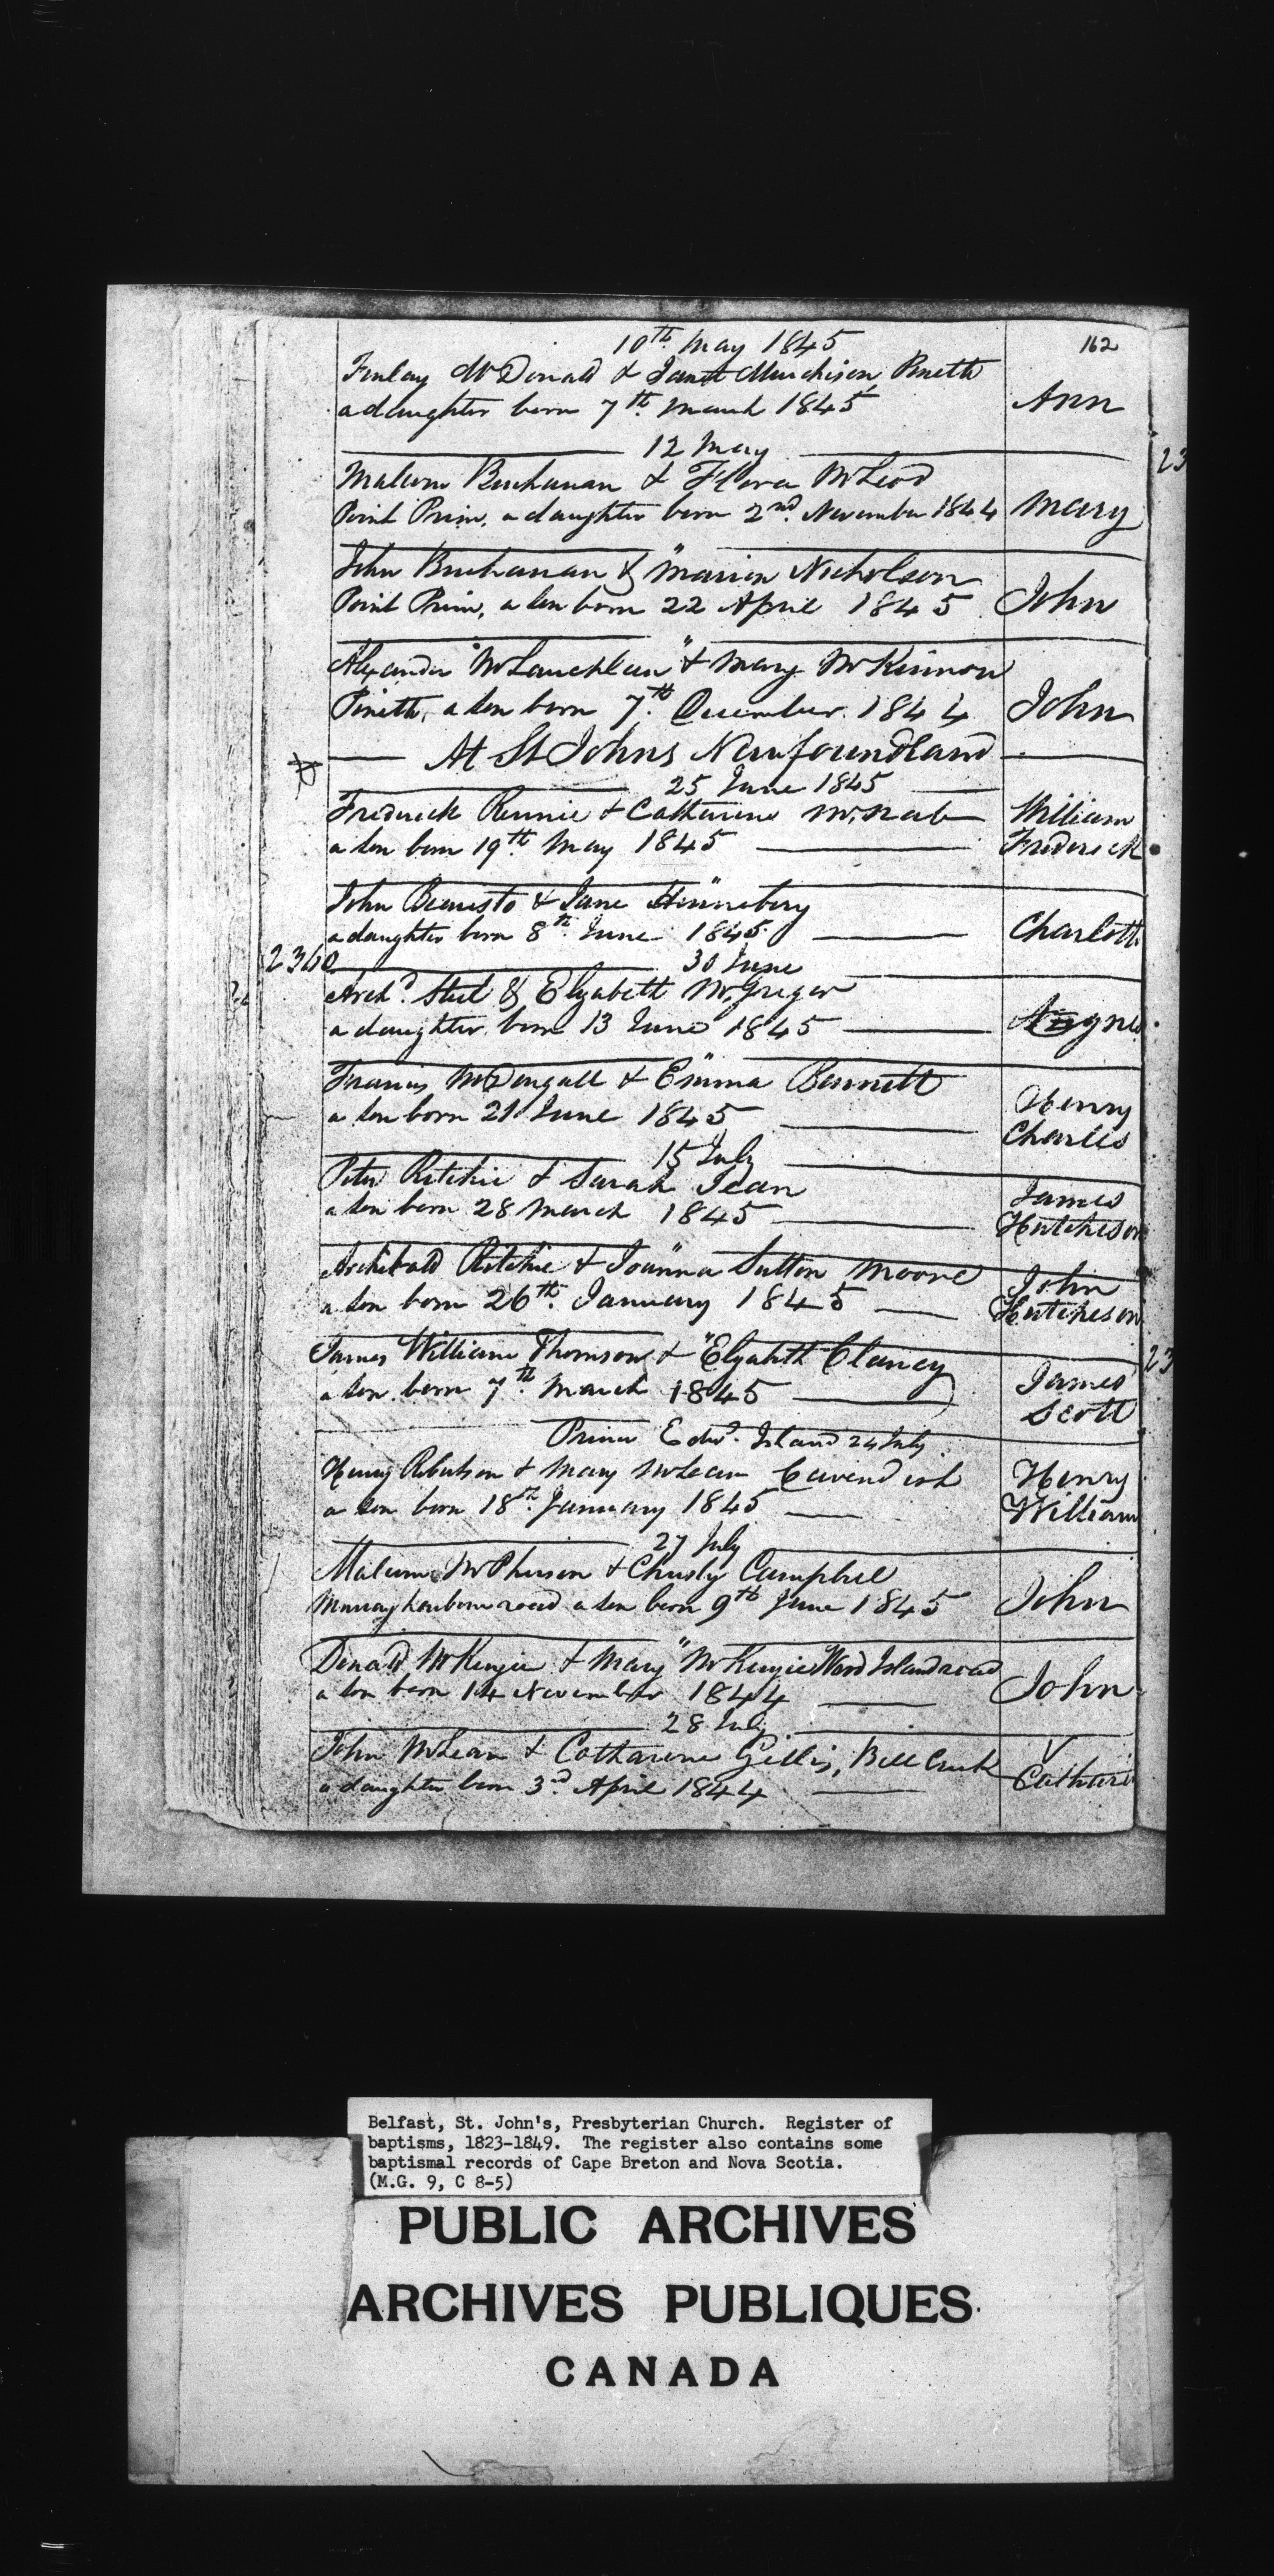 162
10th May 1845
Finlay McDonald & Janet Murchison, Pinette
a daughter born 7th March 1845
Ann
12 May
23
Malcum Buchanan & Flora McLeod
Point Prim, a daughter born 2nd November 1844
Mary
John Buchanan & Marion Nicholson
Point Prim, a son born 22 April 1845
John
Alexander McLauchlan & Mary McKinnon
Pinette, a son born 7th December 1844
John
At St Johns Newfoundland
25 June 1845
Frederick Rennie & Catharine McNab
a son born 19th May 1845
William
Frederick
John & Jane
a daughter born 8th June 1845
Charlott
2360
30 June
Archd Steel & Elizabeth McGregor
a daughter born 13 June 1845
Agnes
Francis McDougall & Emma Bennett
a son born 21 June 1845
Henry
Charles
15 July
Peter Ritchie & Sarah Jean
a son born 28 March 1845
James
Hutcheson
Archibald Ritchie & Joanna Sutton Moore
a son born 26th January 1845
John
Hutcheson
James William Thomson & Elizabeth Clancy
a son born 7th March 1845
James
Scott
23
Prince Edwd Island 24 July
Henry Robertson & Mary McLean Cavendish
a son born 18th January 1845
Henry
William
27 July
Malcum McPherson & Christy Campbel
Murray harbour road a son born 9th June 1845
John
Donald McKenzie & Mary McKenzie Wood Island road
a son born 14 November 1844
John
28 July
John McLean & Catharine Gillis, Bell Creek
a daughter born 3rd April 1844
Catharin
Belfast, St. John's, Presbyterian Church. Register of
baptisms, 1823-1849. The register also contains some
baptismal records of Cape Breton and Nova Scotia.
(M.G. 9, C 8-5)
PUBLIC ARCHIVES
ARCHIVES PUBLIQUES
CANADA